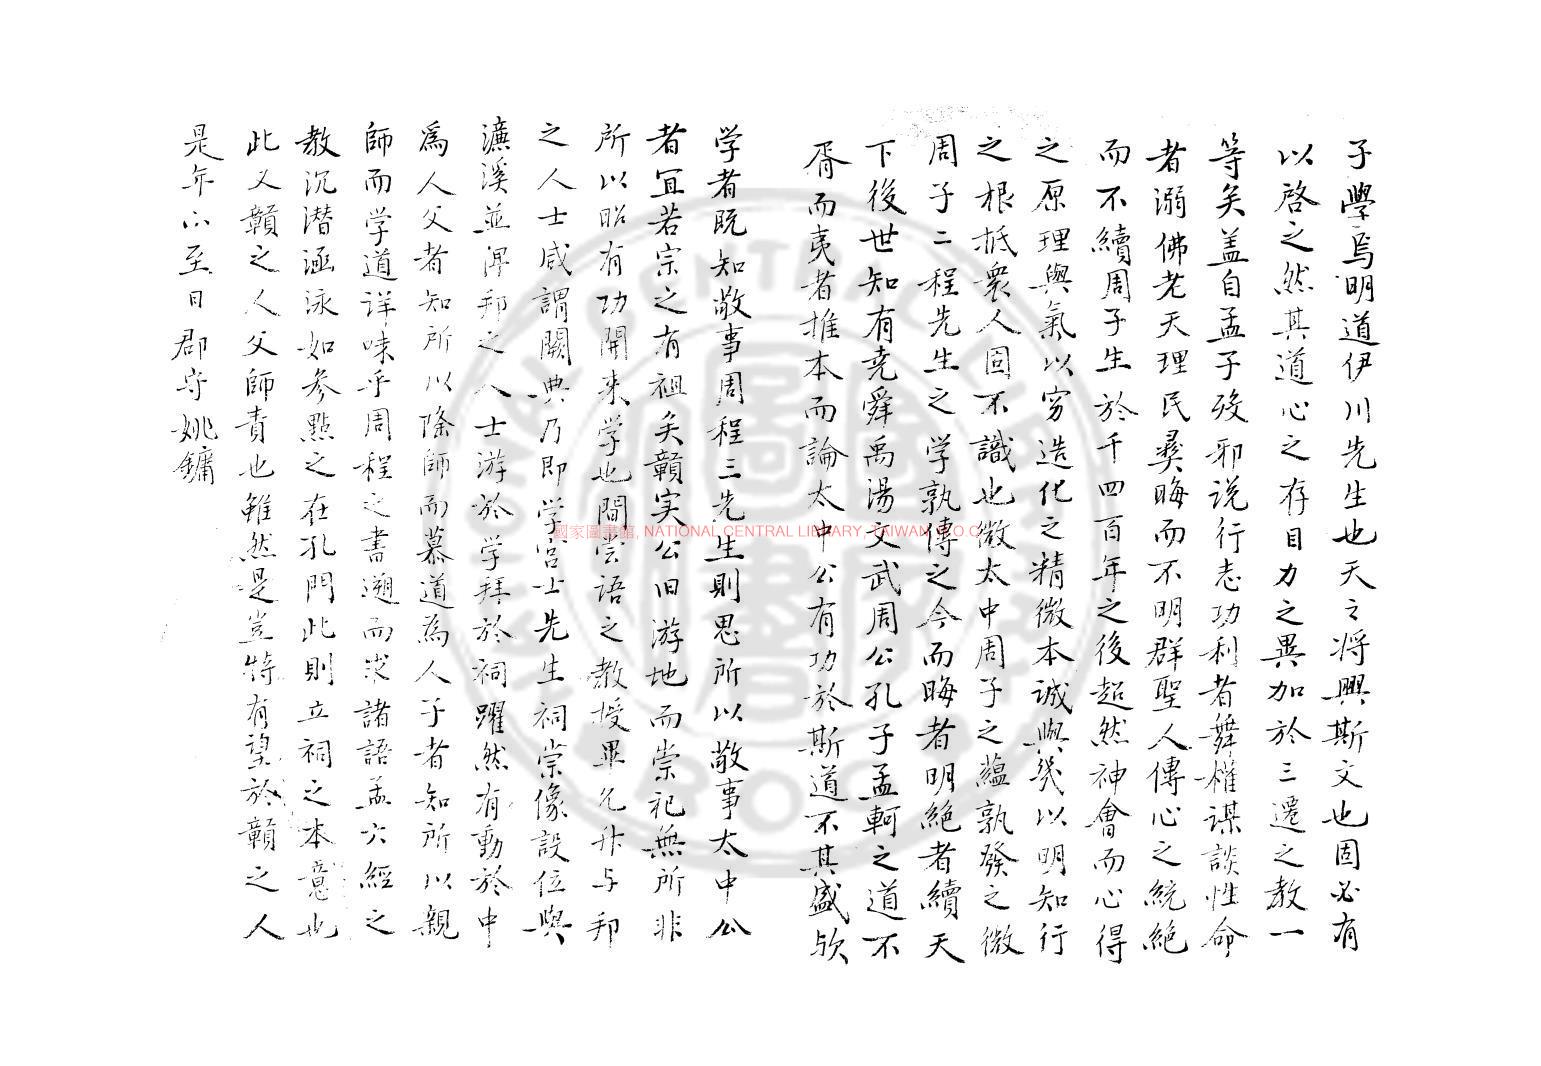 子學焉明道伊川先生也天之將興斯文也固必有
以啓之然其道心之存目力之異加於三遷之教一
等矣盖自孟子歿邪説行志功利者舞權謀談性命
者溺佛老天理民彛晦而不明群聖人傳心之統絶
而不續周子生於千四百年之後超然神會而心得
之原理與氣以窮造化之精微本誠與㡬以明知行
之根柢衆人固不識也微太中周子之蘊孰發之微
周子二程先生之学孰傳之今而晦者明絶者續天
下後世知有堯舜禹湯文武周公孔子孟軻之道不
胥而夷者推本而論太中公有功於斯道不其盛欤
学者既知敬事周程三先生則思所以敬事太中公
者冝若宗之有祖矣贛实公旧游地而崇祀無所非
所以昭有功開来学也間嘗語之教授畢允升与邦
之人士咸謂闕典乃即学宫士先生祠崇像設位與
濂溪並俾邦之人士游於学拜於祠躍然有動於中
爲人父者知所以隆師而慕道為人子者知所以親
師而学道详味乎周程之書遡而求諸語孟六經之
教沉潜涵泳如参點之在孔門此則立祠之本意也
此又贛之人父師責也雖然是豈特有望於贛之人
是年六至日郡守姚鏞
國家圖書館, NATIONAL CENTRAL LIBRARY, TAIWAN R.O.C.
NATIONAL CENTRAL LIBRARY
ROC